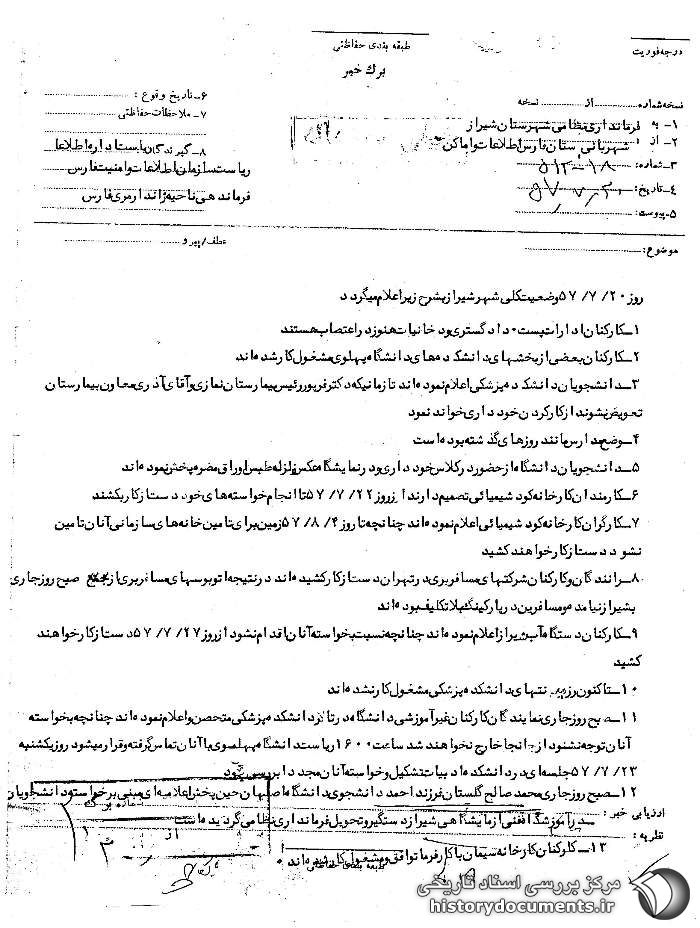 طبقه بندی حفاظتی
درجه فوریت
برگ خبر
نسخه شماره ............ از ............ نسخه
۶ــ تاریخ وقوع :
۷ــ ملاحظات حفاظتی
۱ــ به فرمانداری نظامی شهرستان شیراز
۲ــ از شهربانی استان فارس اطلاعات و اماکن
۸ــ گیرندگان ریاست اداره اطلاعات
۳ــ شماره: ۱۸-۵۱۲
ریاست سازمان اطلاعات و امنیت فارس
۴ــ تاریخ: ۵۷/۷/۲۰
فرماندهی ناحیه ژاندارمری فارس
۵ــ پیوست:
عطف / پیرو
موضوع:
روز ۵۷/۷/۲۰ وضعیت کلی شهر شیراز بشرح زیر اعلام میگردد
۱ــ کارکنان ادارات پست، دادگستری و دخانیات هنوز در اعتصاب هستند
۲ــ کارکنان بعضی از بخشهای دانشکده های دانشگاه پهلوی مشغول کار شده اند
۳ــ دانشجویان دانشکده پزشکی اعلام نموده اند تا زمانیکه دکتر فرپور رئیس بیمارستان نمازی و آقای آذری معاون بیمارستان
تعویض نشوند از کار کردن خودداری خواهند نمود
۴ــ وضع مدارس مانند روزهای گذشته بوده است
۵ــ دانشجویان دانشگاه از حضور در کلاس خودداری و در نمایشگاه عکس زلزله طبس اوراق مضره پخش نموده اند
۶ــ کارمندان کارخانه کود شیمیائی تصمیم دارند از روز ۵۷/۷/۲۲ تا انجام خواسته های خود دست از کار بکشند
۷ــ کارگران کارخانه کود شیمیائی اعلام نموده اند چنانچه تا روز ۵۷/۸/۴ زمین برای تامین خانه های سازمانی آنان تامین
نشود دست از کار خواهند کشید
۸ــ رانندگان و کارکنان شرکتهای مسافربری در تهران دست از کار کشیده اند در نتیجه اتوبوسهای مسافربری از صبح روز جاری
بشیراز نیامده و مسافرین در پارکینگ بلاتکلیف بوده اند
۹ــ کارکنان دستگاه آب شیراز اعلام نموده اند چنانچه نسبت بخواسته آنان اقدام نشود از روز ۵۷/۷/۲۷ دست از کار خواهند
کشید
۱۰ــ تاکنون رزیدنتهای دانشکده پزشکی مشغول کار نشده اند
۱۱ــ صبح روز جاری نمایندگان کارکنان غیر آموزشی دانشگاه در تالار دانشکده پزشکی متحصن و اعلام نموده اند چنانچه بخواسته
آنان توجه نشود از جا خارج نخواهند شد ساعت ۱۶۰۰ ریاست دانشگاه پهلوی با آنان تماس گرفته و قرار میشود روز یکشنبه
۵۷/۷/۲۳ جلسه ای در دانشکده ادبیات تشکیل و خواسته آنان مجددا بررسی شود
۱۲ــ صبح روز جاری محمد صالح گلستان فرزند احمد دانشجوی دانشگاه اصفهان حین پخش اعلامیه ای مبنی بر خواسته دانشجویان
ارزیابی خبر :
شماره برگ
در آموزشگاه فنی آزمایشگاهی شیراز دستگیر و تحویل فرمانداری نظامی گردیده است
نظریه :
از
۱۳ــ کارکنان کارخانه سیمان با کارفرما توافق و مشغول کار شده اند
طبقه بندی حفاظتی
مرکز بررسی اسناد تاریخی
historydocuments.ir